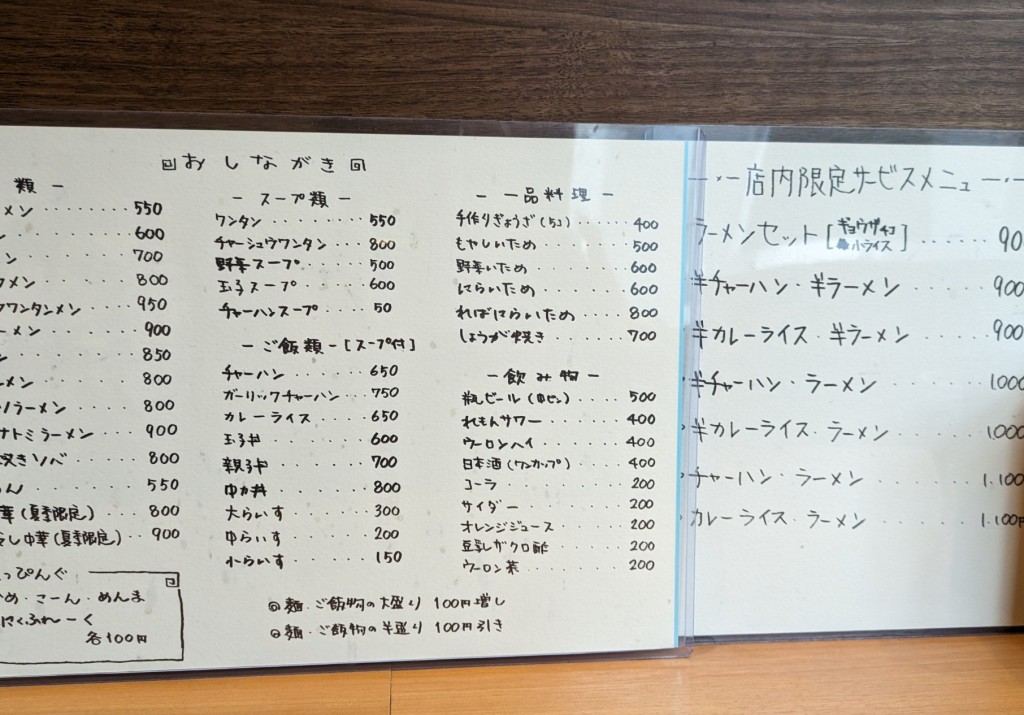 おしながき
類 ー
メン ........ 550
600
ン ........ 700
メン ....... 800
ワンタンメン .... 950
ーメン ...... 900
ン ........ 850
ーメン ...... 800
ソラーメン .... 800
ナトミラーメン ... 900
焼きソバ ..... 800
550
華(夏季限定) .... 800
し中華(夏季限定) .. 900
っぴんぐ
め・こーん・めんま
にくふれーく
各100円
ー スープ類 ー
ワンタン ....... 550
チャーシュウワンタン ... 800
野菜スープ ..... 500
玉子スープ ..... 600
チャーハンスープ .... 50
ー ご飯類 ー [スープ付]
チャーハン ...... 650
ガーリックチャーハン ... 750
カレーライス ..... 650
玉子丼 ........ 600
親子丼 ........ 700
中力丼 ........ 800
大らいす ....... 300
中らいす ....... 200
小らいす ....... 150
ー 一品料理 ー
手作りぎょうざ(5コ) .... 400
もやしいため ...... 500
野菜いため ....... 600
にらいため ....... 600
ればにらいため .... 800
しょうが焼き ...... 700
ー 飲み物 ー
瓶ビール(中ビン) .... 500
れもんサワー ...... 400
ウーロンハイ ...... 400
日本酒(ワンカップ) .... 400
コーラ ......... 200
サイダー ........ 200
オレンジジュース .... 200
豆乳 200
ウーロン茶 ....... 200
◎麺・ご飯物の大盛り 100円増し
◎麺・ご飯物の半盛り 100円引き
店内限定サービスメニュー
ラーメンセット [ギョウザ4コ 小ライス] ...... 90
半チャーハン・半ラーメン ...... 900
半カレーライス・半ラーメン ..... 900
半チャーハン・ラーメン ....... 1.000
半カレーライス・ラーメン ...... 1.000
チャーハン・ラーメン ........ 1.100
カレーライス・ラーメン ....... 1.100円